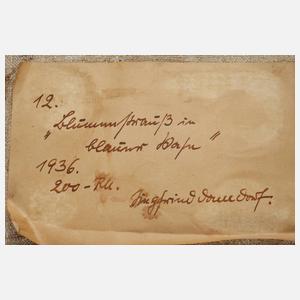 12.
„Blumenstrauß in
blauer Vase"
1936.
200.-RM.
Siegfried Donndorf.